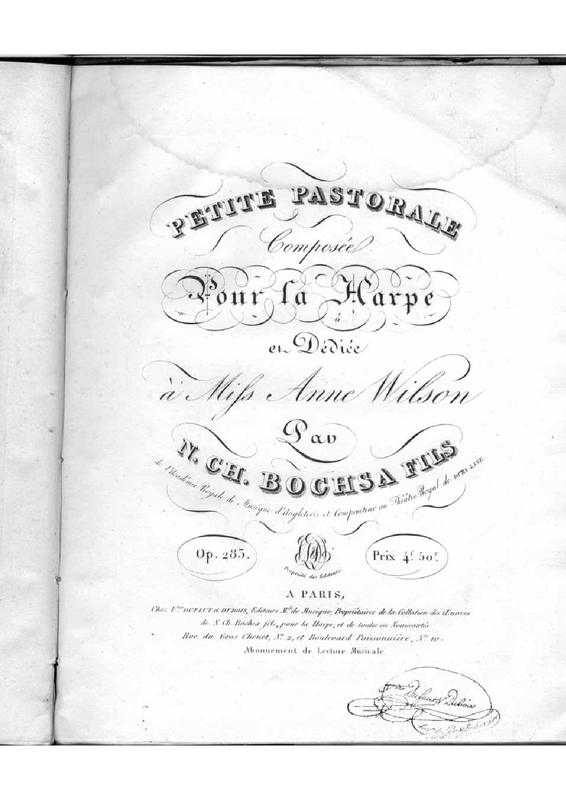 PETITE PASTORALE
Composée
Pour la Harpe
et Dédiée
à Miſs Anne Wilson
Par
N. CH. BOCHSA FILS
de l'Académie Royale de Musique d'Angleterre et Compositeur au Théâtre Royal de DRURY LANE
Op. 283.
Propriété des Editeurs
Prix 4f 50c
A PARIS,
Chez Vve DUFAUT et DUBOIS, Editeurs Mds de Musique, Propriétaires de la Collection des Œuvres
de N. Ch. Bochsa, fils, pour la Harpe, et de toutes ses Nouveautés
Rue du Gros Chenet, No. 2, et Boulevard Poissonnière, No. 10.
Abonnement de Lecture Musicale
Dufaut et Dubois